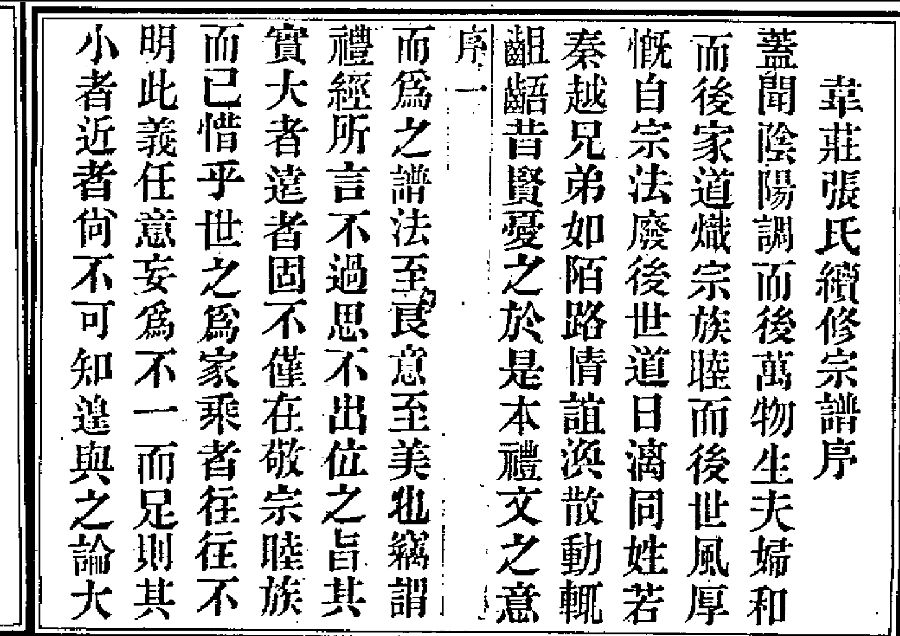 韋莊張氏續修宗譜序
蓋聞陰陽調而後萬物生夫婦和
而後家道熾宗族睦而後世風厚
慨自宗法廢後世道日漓同姓若
秦越兄弟如陌路情誼渙散動輒
齟齬昔賢憂之於是本禮文之意
序一
而爲之譜法至良意至美也竊謂
禮經所言不過思不出位之旨其
實大者遠者固不僅在敬宗睦族
而已惜乎世之爲家乘者往往不
明此義任意妄爲不一而足則其
小者近者尙不可知遑與之論大